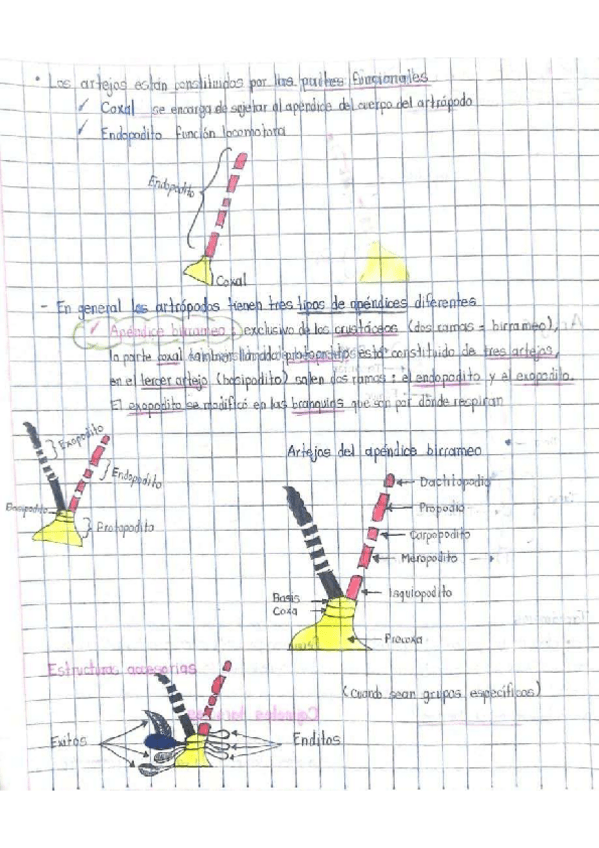 • Los artejos están constituidos por las partes funcionales
✓ Coxal se encarga de sujetar al apéndice del cuerpo del artrópodo
✓ Endopodito función locomotora
Endopodito
Coxal
- En general los artrópodos tienen tres tipos de apéndices diferentes
✓ Apéndice birrameo : exclusivo de los crustáceos (dos ramas = birrameo),
la parte coxal también llamada protopodito está constituido de tres artejos,
en el tercer artejo (basipodito) salen dos ramas : el endopodito y el exopodito.
El exopodito se modificó en las branquias que son por donde respiran
Exopodito
Endopodito
Basipodito
Protopodito
Artejos del apéndice birrameo
Dactilopodio
Propodio
Carpopodito
Meropodito
Isquiopodito
Basis
Coxa
Precoxa
Estructuras accesorias
(Cuando sean grupos específicos)
Exitos
Enditos